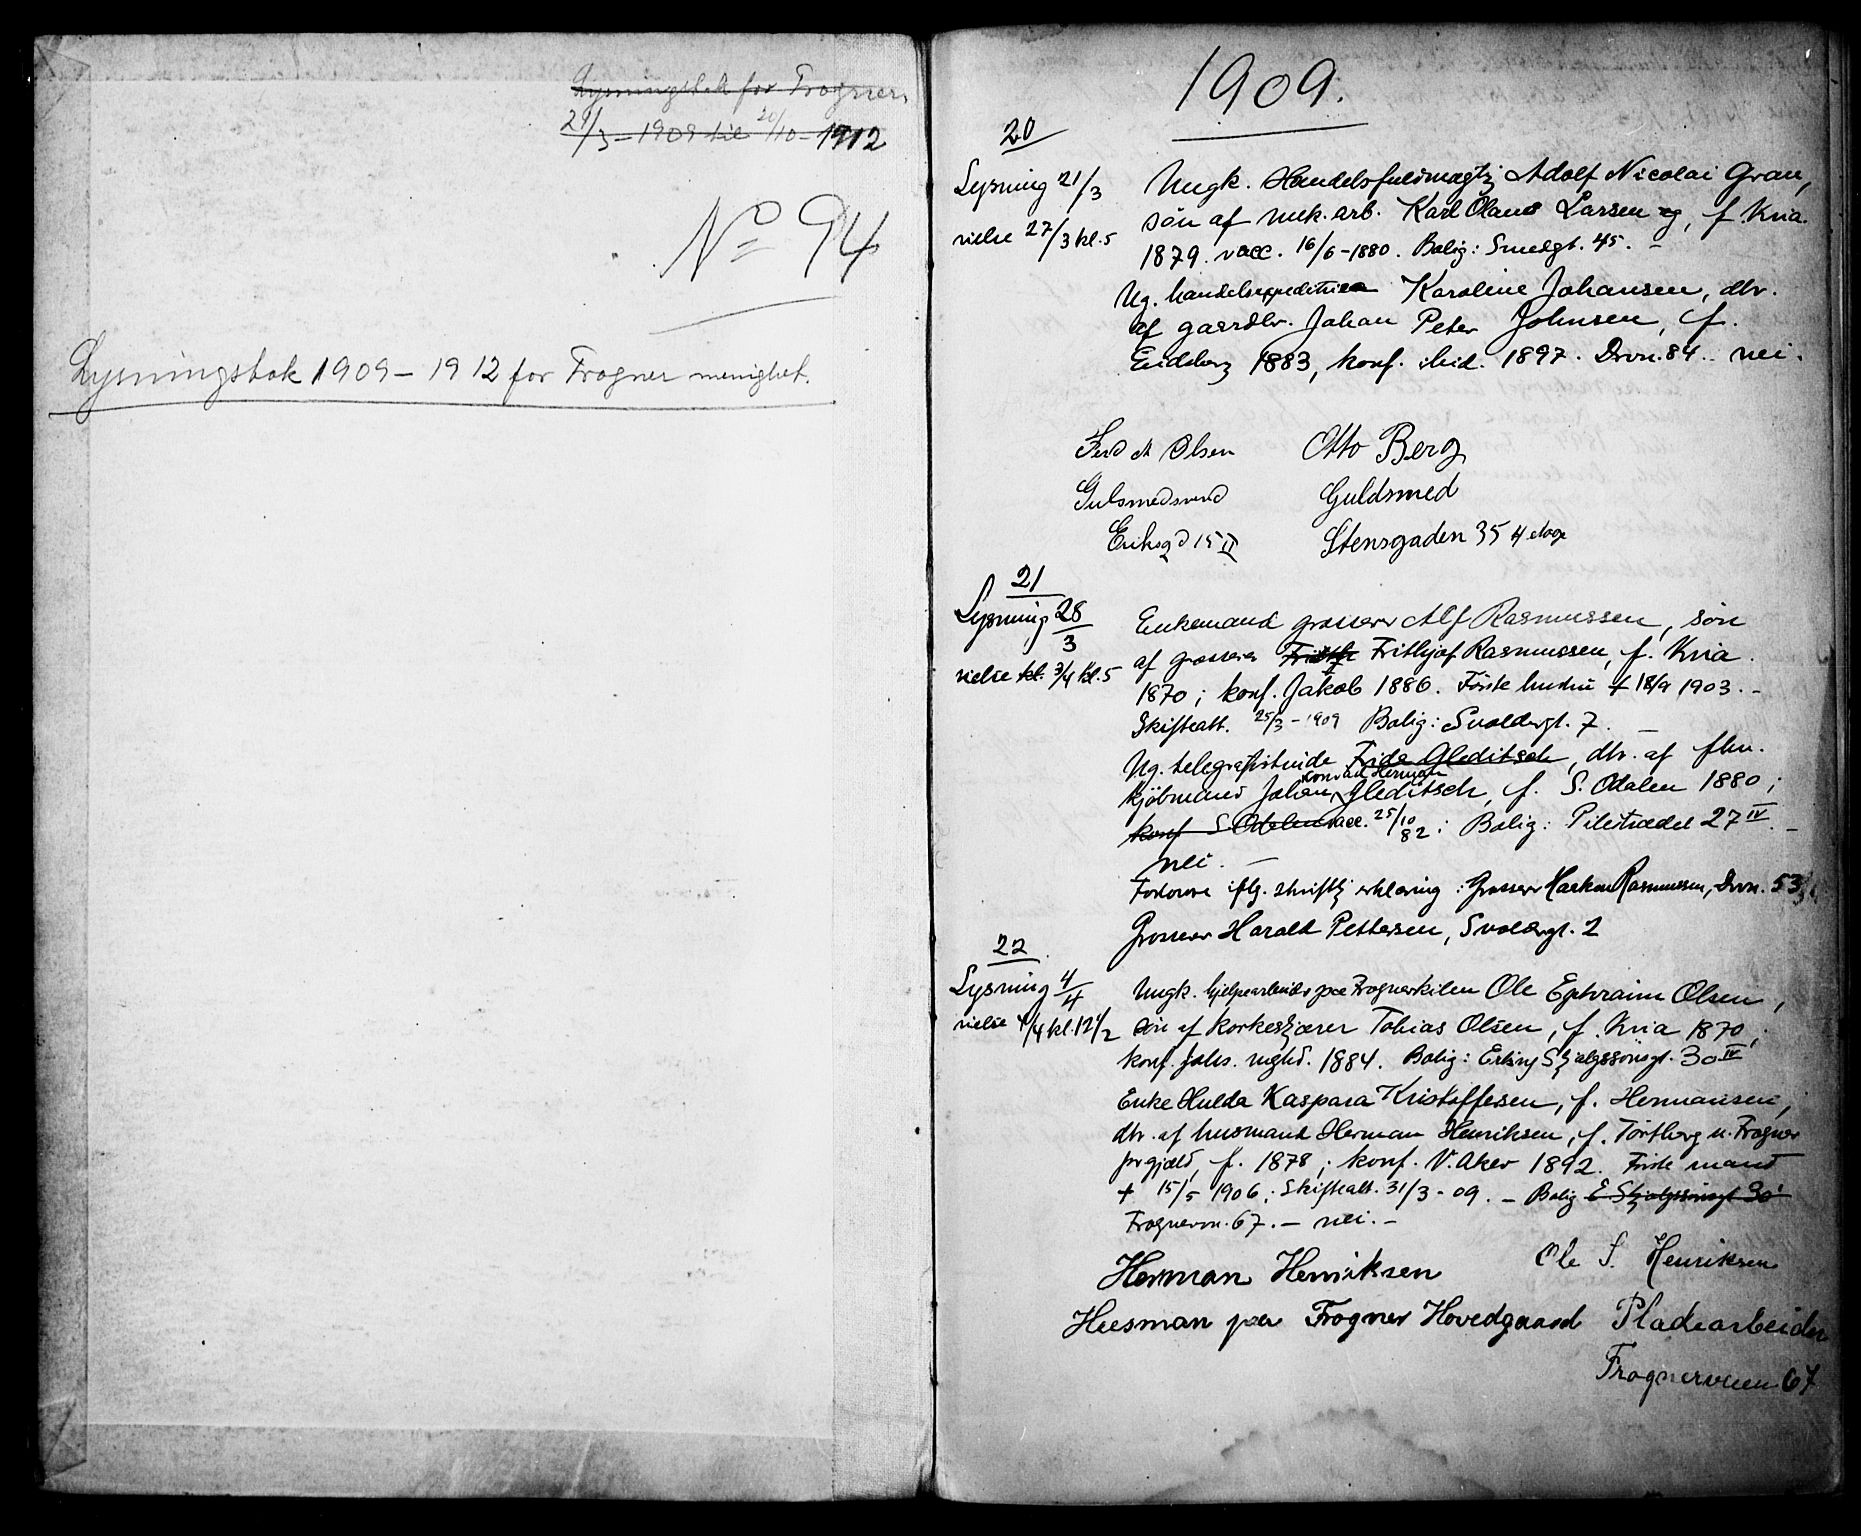 Lysningsbok for Frogner
21/3 - 1909 til 20/10 - 1912
No 94
Lysningsbok 1909 - 1912 for Frogner menighet.
1909.
20
Lysning 21/3
vielse 27/3 kl. 5
Ungk. Handelsfuldmægtig Adolf Nicolai Gran,
søn af mek. arb. Karl Olaus Larsen, f. Kria.
1879. vacc. 16/6 - 1880. Bolig: Smedgt. 45. -
Ug. handelsexpeditrice Karoline Johansen, dtr.
af gaardbr. Johan Peter Johnsen, f.
Eidsberg 1883, konf. ibid. 1897. Drvn. 84. - nei.
Ferd M Olsen Otto Berg
Gulsmedsvend Guldsmed
Eriksgd 15 II Stensgaden 35 4 etage
21
Lysning 28/3
vielse kl. 3/4 kl. 5
Enkemand grosserer Alf Rasmussen, søn
af grosserer Fridtj Frithjof Rasmussen, f. Kria.
1870; konf. Jakob 1886. Første hustru + 18/9 1903. -
Skifteatt. 25/3 - 1909 Bolig: Svoldergt. 7. -
Ug. telegrafistinde Frida Gleditsch, dtr. af fhv.
Konrad Herman
kjøbmand Johan Gleditsch, f. S. Odalen 1880;
konf S Odalen vacc. 25/10 82; Bolig: Pilestrædet 27 IV. -
nei. -
Forlovere iflg. skriftlig erklæring: Grosserer Haakon Rasmussen, Drvn. 53,
Grosserer Harald Pettersen, Svoldergt. 2
22
Lysning 4/4
vielse 4/4 kl. 12 1/2
Ungk. hjelpearbeider paa Frognerkilen Ole Ephraim Olsen,
søn af korkeskjærer Tobias Olsen, f. Kria 1870;
konf. Johs. mghd. 1884. Bolig: Erling Skjalgssønsgt. 30 IV
Enke Hulda Kaspara Kristoffersen, f. Hermansen,
dtr. af husmand Herman Henriksen, f. Tørtberg u. Frogner
prgjæld, f. 1878; konf. V. Aker 1892. Første mand
+ 15/5 1906; Skifteatt. 31/3 - 09. - Bolig E Skjalgssønsgt 30
Frognervn. 67. - nei. -
Herman Henriksen Ole S. Henriksen
Huesman paa Frogner Hovedgaard Pladearbeider
Frognerveien 67